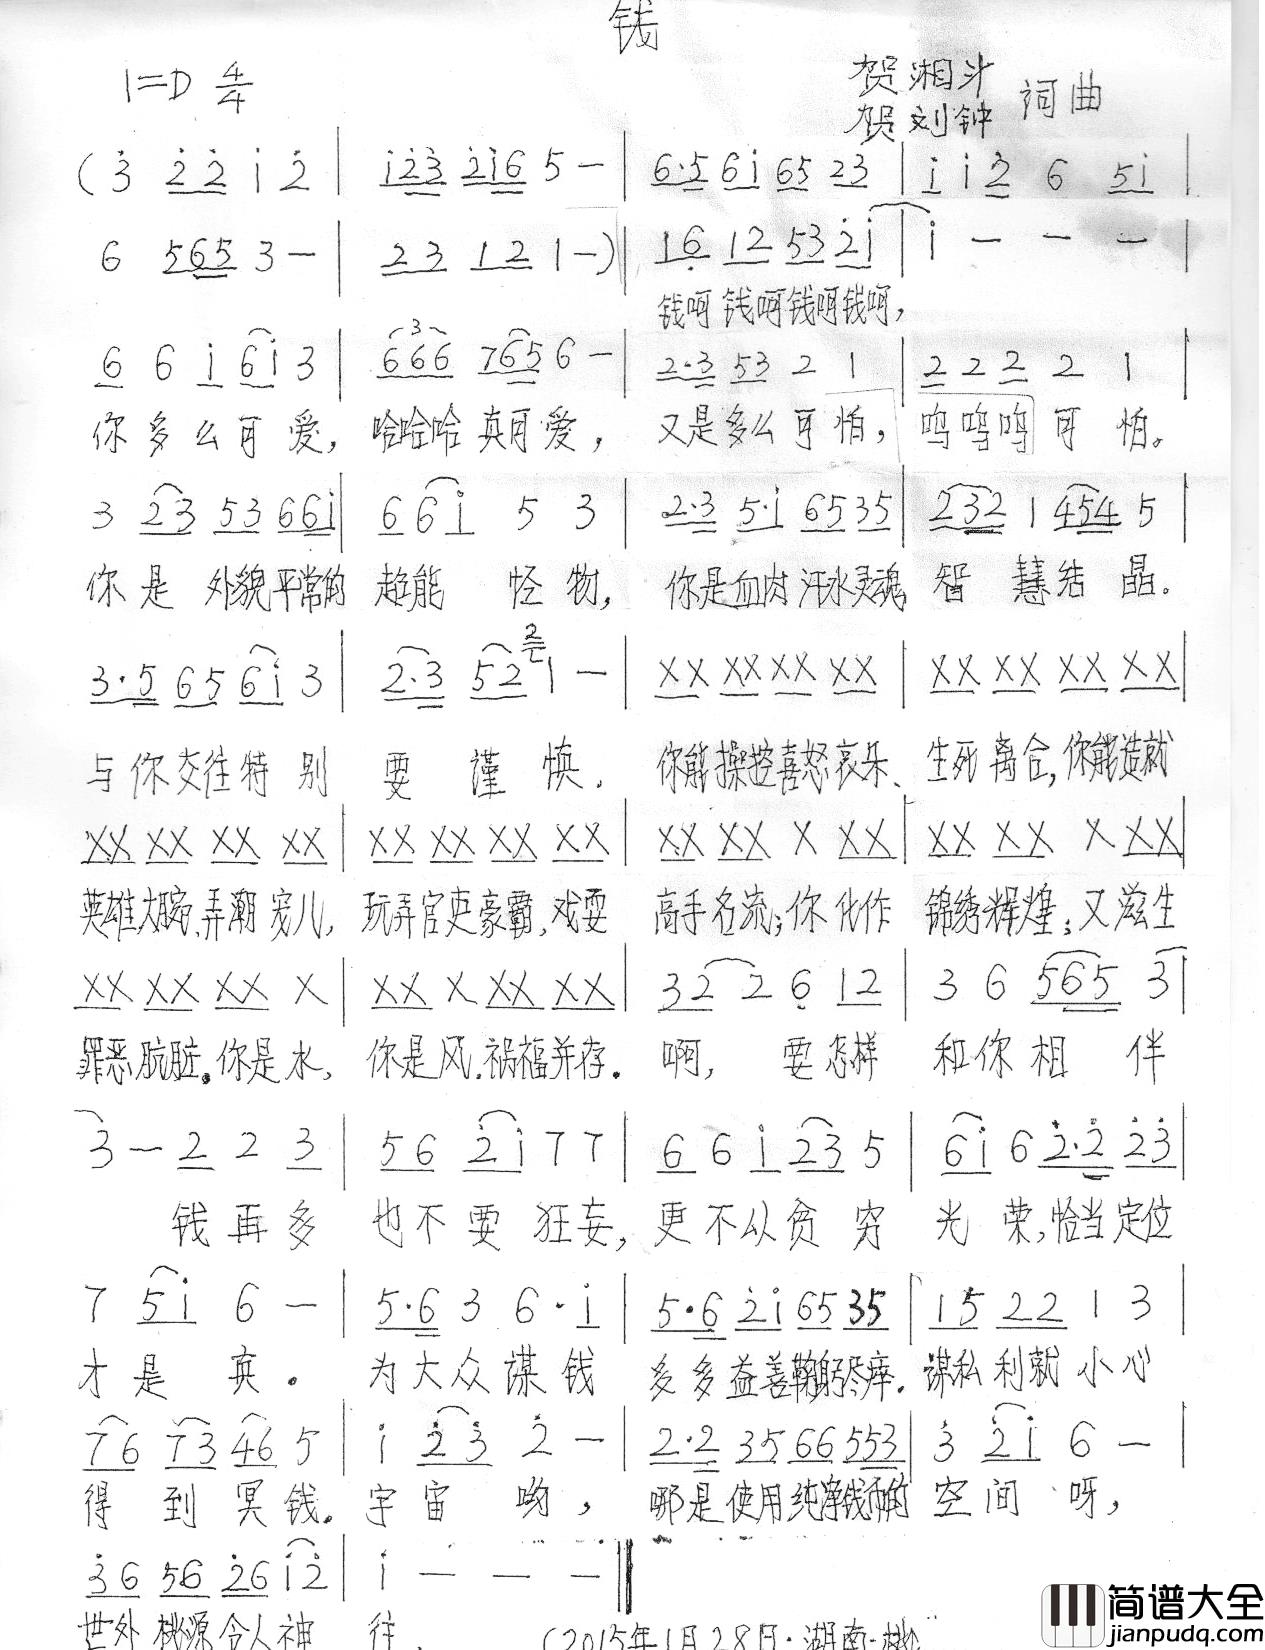 钱
1=D 4/4
贺湘斗
贺刘钟 词曲
(3 2 2 1 2 | 1 2 3 2 1 6 5 — | 6·5 6 1 6 5 2 3 | 1 1 2 6 5 1 |
6 5 6 5 3 — | 2 3 1 2 1 —) | 1 6 1 2 5 3 2 1 | 1 — — — |
钱呵钱呵钱呵钱呵,
6 6 1 6 1 3 | 6 6 6 7 6 5 6 — | 2·3 5 3 2 1 | 2 2 2 2 1 |
你多么可爱,哈哈哈真可爱,又是多么可怕,呜呜呜可怕。
3 2 3 5 3 6 6 1 | 6 6 1 5 3 | 2·3 5·1 6 5 3 5 | 2 3 2 1 4 5 4 5 |
你是外貌平常的超能怪物,你是血肉汗水灵魂智慧结晶。
3·5 6 5 6 1 3 | 2·3 5 2 2 1 — | X X X X X X X X | X X X X X X X X |
与你交往特别要谨慎.你能操控喜怒哀乐、生死离合,你能造就
X X X X X X X X | X X X X X X X X | X X X X X X X | X X X X X X X |
英雄大腕、弄潮宠儿,玩弄官吏豪霸,戏耍高手名流;你化作锦绣辉煌;又滋生
X X X X X X X | X X X X X X X | 3 2 2 6 1 2 | 3 6 5 6 5 3 |
罪恶肮脏。你是水,你是风.祸福并存.啊,要怎样和你相伴
3 — 2 2 3 | 5 6 2 1 7 7 | 6 6 1 2 3 5 | 6 1 6 2·2 2 3 |
钱再多也不要狂妄,更不从贫穷光荣,恰当定位
7 5 1 6 — | 5·6 3 6·1 | 5·6 2 1 6 5 3 5 | 1 5 2 2 1 3
才是真。为大众谋钱多多益善鞠躬尽瘁.谋私利就小心
7 6 7 3 4 6 5 | 1 2 3 2 — | 2·2 3 5 6 6 5 5 3 | 3 2 1 6 — |
得到冥钱.宇宙哟,哪是使用纯净钱币的空间呀,
3 6 5 6 2 6 1 2 | 1 — — — ||
世外桃源令人神往.
(2015年1月28日·湖南·桃
简谱大全
jianpudq.com